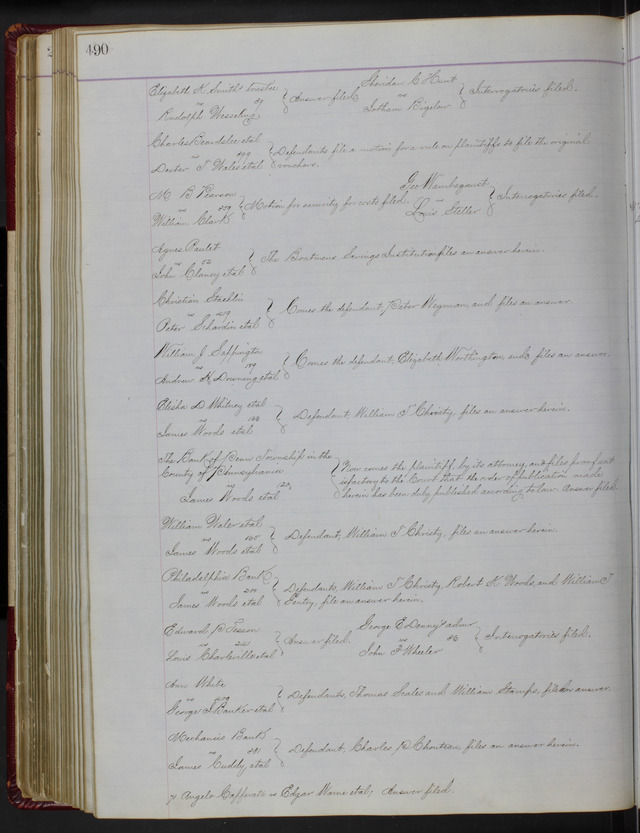 490
Elizabeth K. Smith trustee
vs
Rudolph Wesseling
Answer filed.
Sheridan C Hunt
vs
Jotham Bigelow
Interrogatories filed.
Charles Beardslee etal
vs
Doctor T. Waler etal
Defendants file a motion for a rule on plaintiffs to file the original
vouchers.
M B Pearson
vs
William Clark
Motion for security for costs filed.
Geo Wambsganst
vs
Louis Steller
Interrogatories filed.
Agnes Paulet
vs 52
John Clancy etal
The Boatmens Savings Institution files an answer herein.
Christian Staehlin
vs
Peter Schardin etal
Comes the defendant, Peter Weyman, and files an answer.
William J. Sappington
vs
Andrew K. Downing etal
Comes the defendant, Elizabeth Worthington, and files an answer.
Elisha D Whitney etal
vs
James Woods etal
Defendant William T Christy, files an answer herein.
The Bank of Penn Township in the
County of Pennsylvania
vs
James Woods etal
Now comes the plaintiff, by its attorney, and files proof sat
isfactory to the Court that the order of publication made
herein has been duly published according to law. Answer filed.
William Waler etal
vs
James Woods etal
Defendant, William T Christy, files an answer herein.
Philadelphia Bank
vs
James Woods etal
Defendants, William T Christy, Robert K Woods, and William T
Gentry, file an answer herein.
Edward P Tesson
vs
Louis Charleville etal
Answer filed.
George E Denny's admr
vs 86
John F Wheeler
Interrogatories filed.
Ann White
vs
George I Banker etal
Defendants, Thomas Scales and William Stamps, file an answer.
Mechanics Bank
vs
James Cuddy, etal
Defendant, Charles P Chouteau, files an answer herein.
7 Angelo Cafferata vs Edgar Warne etal; Answer filed.